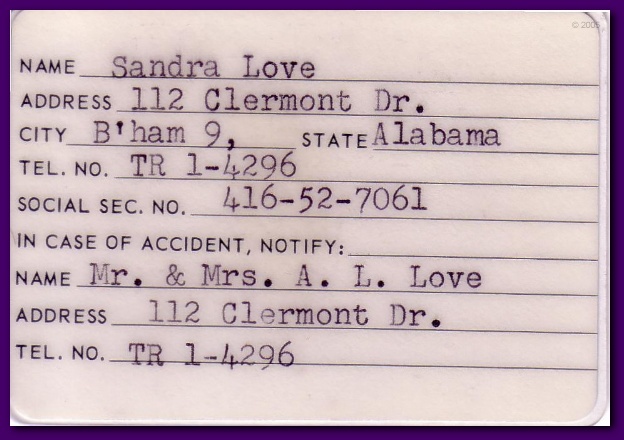 NAME Sandra Love
ADDRESS 112 Clermont Dr.
CITY B'ham 9, STATE Alabama
TEL. NO. TR 1-4296
SOCIAL SEC. NO. 416-52-7061
IN CASE OF ACCIDENT, NOTIFY:
NAME Mr. & Mrs. A. L. Love
ADDRESS 112 Clermont Dr.
TEL. NO. TR 1-4296